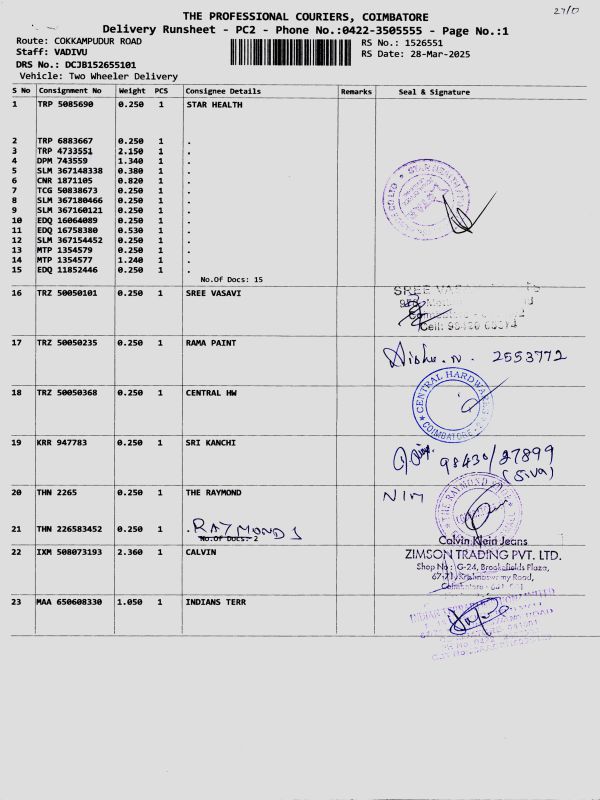 27/0
THE PROFESSIONAL COURIERS, COIMBATORE
Delivery Runsheet - PC2 - Phone No.:0422-3505555 - Page No.:1
Route: COKKAMPUDUR ROAD
RS No.: 1526551
Staff: VADIVU
RS Date: 28-Mar-2025
DRS No.: DCJB152655101
Vehicle: Two Wheeler Delivery
S No Consignment No Weight PCS Consignee Details Remarks Seal & Signature
1 TRP 5085690 0.250 1 STAR HEALTH
2 TRP 6883667 0.250 1 .
3 TRP 4733551 2.150 1 .
4 DPM 743559 1.340 1 .
5 SLM 367148338 0.380 1 .
6 CNR 1871105 0.820 1 .
7 TCG 50838673 0.250 1 .
8 SLM 367180466 0.250 1 .
9 SLM 367160121 0.250 1 .
10 EDQ 16064089 0.250 1 .
11 EDQ 16758380 0.530 1 .
12 SLM 367154452 0.250 1 .
13 MTP 1354579 0.250 1 .
14 MTP 1354577 1.240 1 .
15 EDQ 11852446 0.250 1 .
No.Of Docs: 15
16 TRZ 50050101 0.250 1 SREE VASAVI
SREE
Cell:
17 TRZ 50050235 0.250 1 RAMA PAINT
N. 2553772
18 TRZ 50050368 0.250 1 CENTRAL HW
CENTRAL HARDWARES
COIMBATORE
19 KRR 947783 0.250 1 SRI KANCHI
98430/27899
(Siva)
20 THN 2265 0.250 1 THE RAYMOND
THE RAYMOND
21 THN 226583452 0.250 1 . RAYMOND 1
No.Of Docs: 2
22 IXM 508073193 2.360 1 CALVIN
Calvin Klein Jeans
ZIMSON TRADING PVT. LTD.
Shop No : G-24, Brookefields Plaza,
67-71, Krishnaswamy Road,
Coimbatore - 641 001
23 MAA 650608330 1.050 1 INDIANS TERR